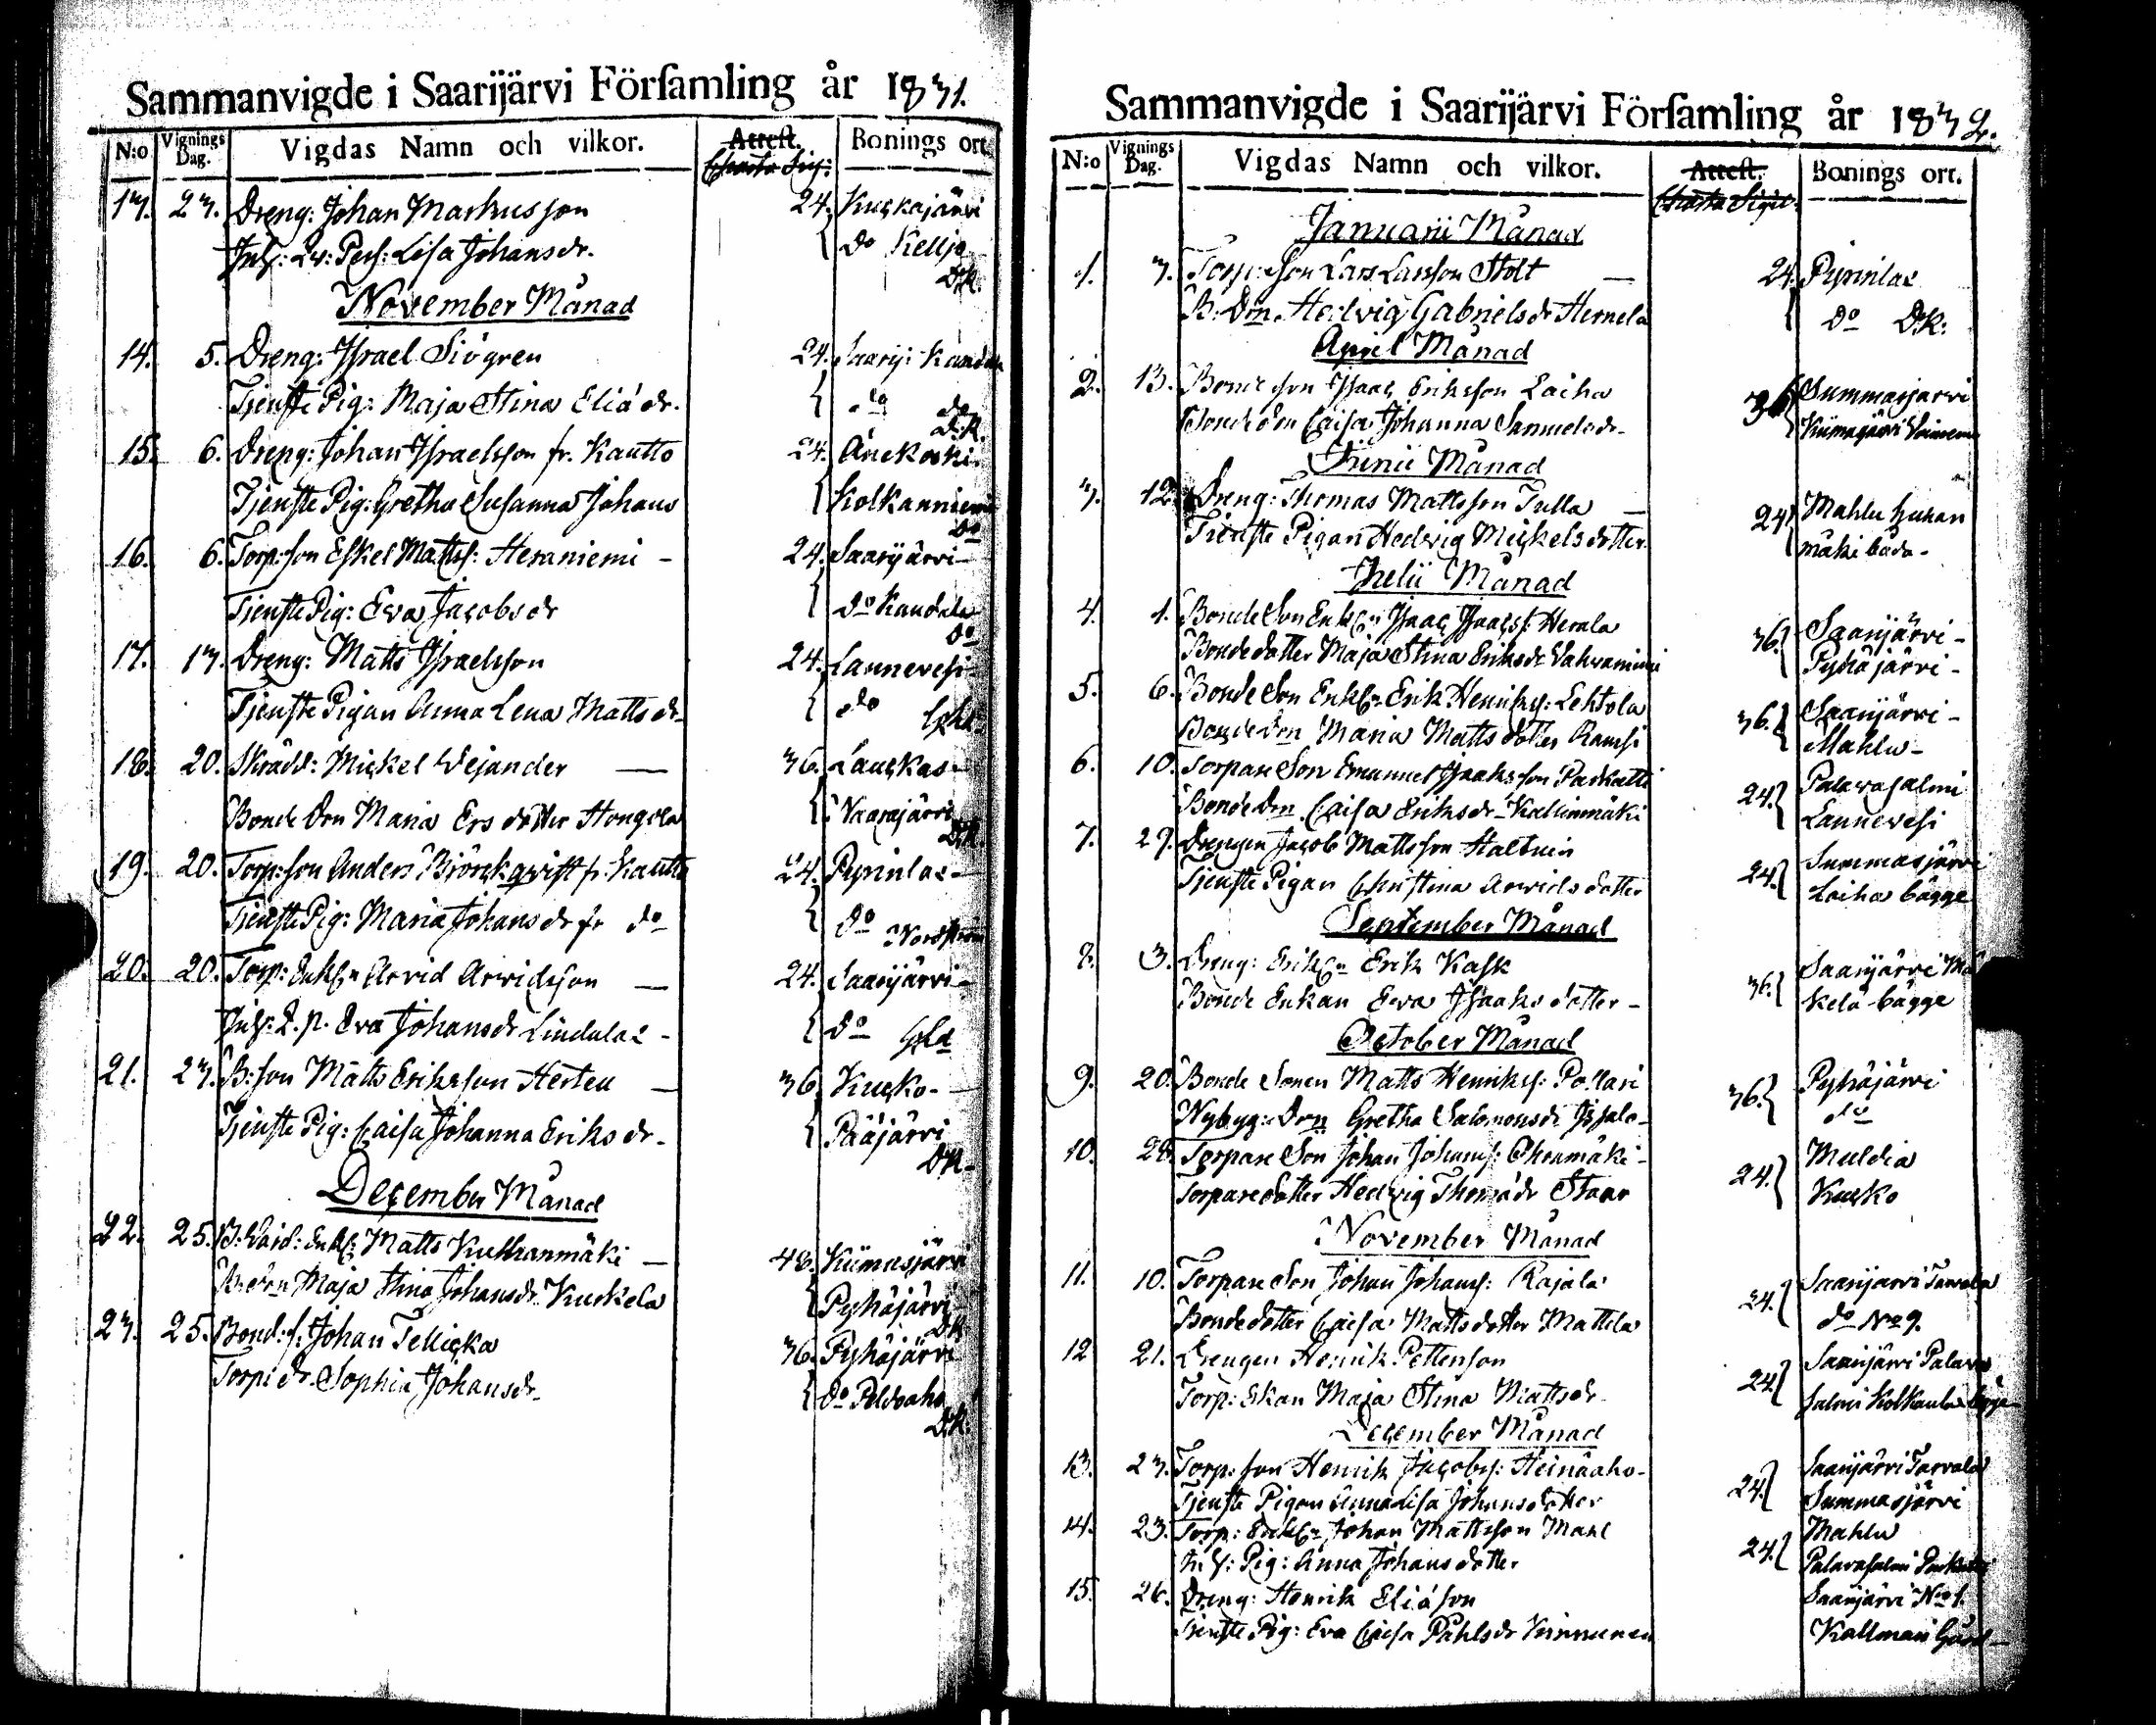 Sammanvigde i Saarijärvi Förſamling år 1831.
N:o Vignings Dag. Vigdas Namn och vilkor. Atteſt. Charta Sig: Bonings ort.
13. 23. Dreng: Johan Markusson 24. Kuskajärvi
Inh: Qv: Pers: Lisa Johansdr. do Kelljo
D:K.
November Månad
14. 5. Dreng: Israel Siögren 24. Saarij:
Tjenste Pig: Maja Stina Eliædr. do do
D:K.
15. 6. Dreng: Johan Israelsson fr. Kautto 24. Änekoski
Tjenste Pig: Gretha Susanna Johans Kolkanniemi
do
16. 6. Torp: son Eskel Matts: Heraniemi - 24. Saarijärvi
Tjenste Pig: Eva Jacobsdr do Kandala
do
17. 13. Dreng: Matts Israelsson 24. Lannevesi
Tjenste Pigan Anna Lena Mattsdr. do
18. 20. Skrädd: Mickel Wejander — 36. Laukas
Bonde Dra Maria Ersdotter Hongola Vaarajärvi
D:K.
19. 20. Torp: son Anders Björckqvist fr. Kautto 24. Pyrinlax
Tjenste Pig: Maria Johansdr fr do do
20. 20. Torp: Enkl:n Arvid Arvidsson — 24. Saarijärvi
Inh: Q. p. Eva Johansdr Lindalax - do
21. 23. B: son Matts Eriksson Herteu — 36. Kusko-
Tjenste Pig: Caisa Johanna Eriksdr - Pääjärvi
D:K.
December Månad
22. 25. B: Enkl: Matts Kukkanmäki — 48. Kiimasjärvi
B: dra Maja Stina Johansdr Kuskela Pyhäjärvi
D:K.
23. 25. Bond: s: Johan Tellicka 36. Pyhäjärvi
Torp: dr. Sophia Johansdr. do Poldoaho
D:K.
Sammanvigde i Saarijärvi Förſamling år 1832.
N:o Vignings Dag. Vigdas Namn och vilkor. Atteſt. Charta Sigil. Bonings ort.
Januarii Månad
1. 3. Torp: son Lars Larsson Stolt — 24. Pyrinlax
B: Dra Hedvig Gabrielsdr Hernela do D:K:
April Månad
2. 13. Bonde son Isaac Eriksson Laiha 36. Summasjärvi
Bonde dra Caisa Johanna Samuelsdr. Kiimasjärvi
Junii Månad
3. 12. Dreng: Thomas Mattsson Tulla — 24 Mahlu Huhan
Tienste Pigan Hedvig Mickelsdotter. mäki båda.
Julii Månad
4. 1. Bonde Son Enkl:n Isaac Isacss: Herala 36. Saarijärvi -
Bonde dotter Maja Stina Eriksdr Pyhäjärvi -
5. 6. Bonde Son Enkl:n Erik Henriks: Lehtola 36. Saarijärvi -
Bonde dra Maria Matts dotter Ramsi Mahlu -
6. 10. Torpare Son Emanuel Isaksson Parkatti 24. Palavasalmi
Bonde Dra. Caisa Eriksdr Kallinmäki Lannevesi
7. 29. Drengen Jacob Mattsson Haltuin 24. Summasjärvi
Tjenste Pigan Christina Arvidsdotter Laiha bägge
September Månad
8. 3. Dreng: Enkl:n Erik Kask 36. Saarijärvi Mä
Bonde Enkan Eva Isaaks dotter - kelä bägge
October Månad
9. 20. Bonde Sonen Matts Henriks: Pollari 36. Pyhäjärvi
Nybyg: dra Gretha Salomonsdr do
10. 28. Torpare Son Johan Johans: Ohramäki - 24. Muldia
Torparedotter Hedvig Thomædr Staar Kusko
November Månad
11. 10. Torpare Son Johan Johans: Rajala 24. Saarijärvi Tarvala
Bonde dotter Caisa Mattsdotter Mattila do No 9.
12 21. Drengen Henrik Pettersson 24. Saarijärvi Palava
Torp: Ekan Maja Stina Mattsdr. salmi Kolkanlax bägge
December Månad
13. 23. Torp: son Henrik Jacobs: Heinäaho - 24. Saarijärvi Tarvala
Tjenste Pigan Anna Lisa Johansdotter Summasjärvi
14. 23. Torp: Enkl:n Johan Mattsson Mahl 24. Mahlu
Inh: Pig: Anna Johansdotter Palavasalmi
15. 26. Dreng: Henrik Eliæson Saarijärvi No 1.
Tjenste Pig: Eva Caisa Påhlsdr Kinnunen Kallmari Gård